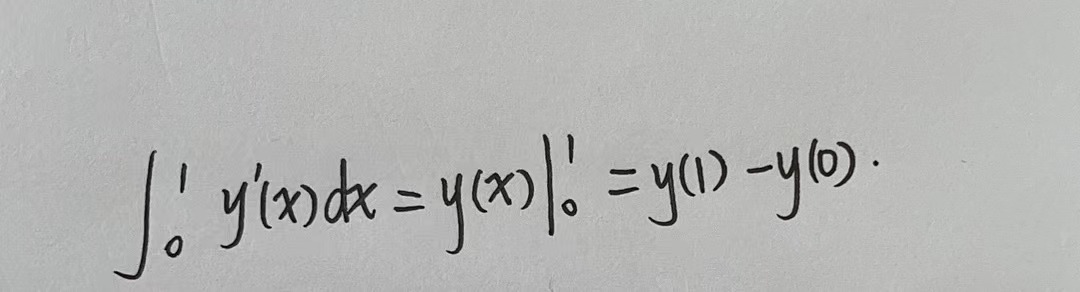 ∫₀¹ y'(x)dx = y(x)|₀¹ = y(1) - y(0).